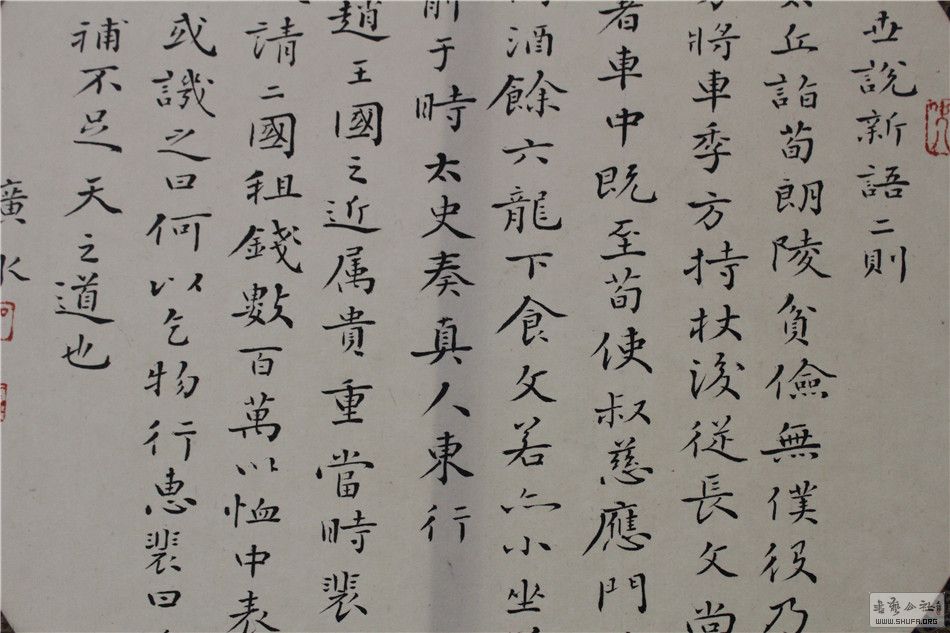 世說新語二則
太丘詣荀朗陵貧儉無僕役乃
將車季方持杖後從長文尚
著車中既至荀使叔慈應門
酒餘六龍下食文若亦小坐
前于時太史奏真人東行
趙王國之近属貴重當時裴
請二國租錢數百萬以恤中表
或譏之曰何以乞物行惠裴曰
補不足天之道也
廣水
書藝公社
WWW.SHUFA.ORG